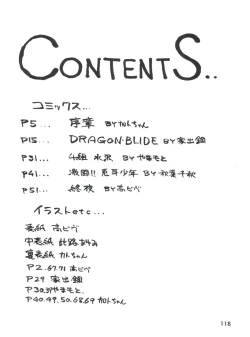 CONTENTS..
コミックス...
P5... 序章 BYかトちゃん
P15... DRAGON・BLIDE BY家出鋼
P31... 4組 水沢 BYやまもと
P41... 激闘!! 忍耳少年 BY秋葉千秋
P51... 終夜 BY高ピベ
イラストetc...
表紙 高ピベ
中表紙
裏表紙 かトちゃん
P2.67.71 高ピベ
P29 家出鋼
P30.39やまもと.
P40.49.50.68.69 かトちゃん
118